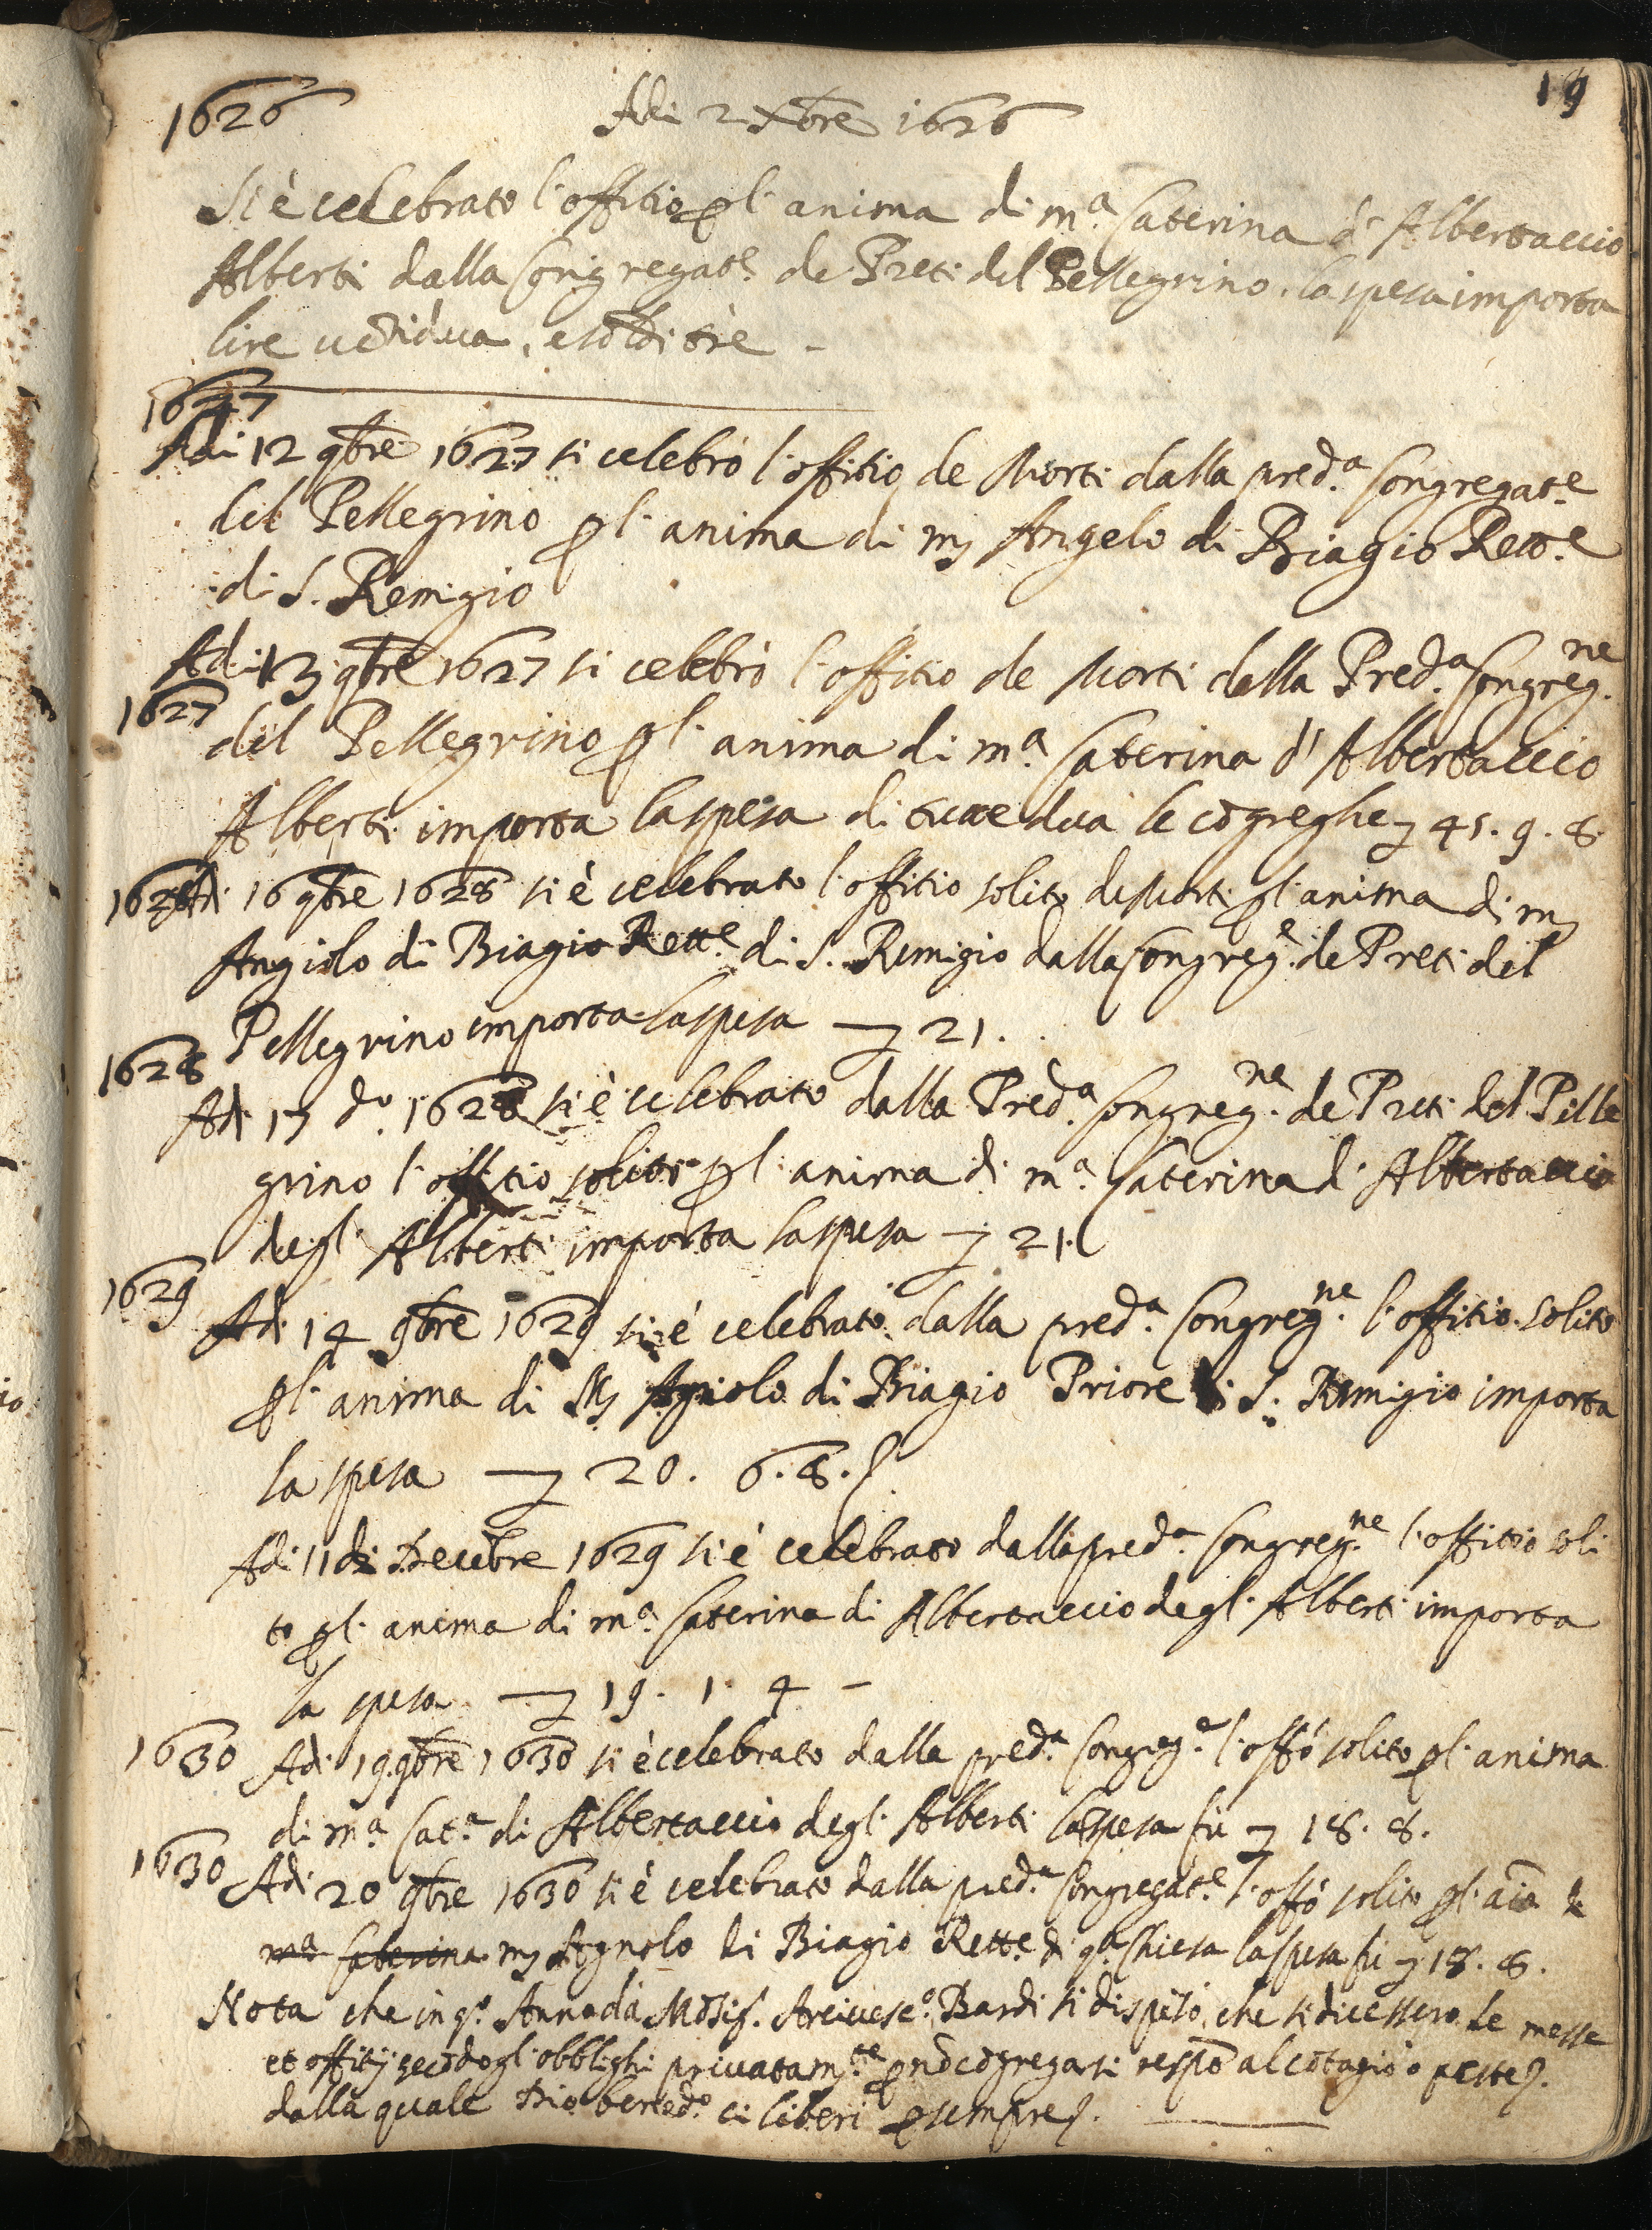 19
1626 Adi 2 Xbre 1626
Si è celebrato l'offitio p l'anima di m.a Caterina d'Albertaccio
Alberti dalla Congregat.e de Preti del Pellegrino. la spesa importa
lire vētidua, e soldi tre -
1627
Adi 12 9bre 1627 si celebrò l'offitio de Morti dalla pred.a Congregat.e
del Pellegrino p l'anima di mʒ Angelo di Biagio Rett.e
di S. Remigio
Adi 13 9bre 1627 si celebrò l'offitio de Morti dalla Pred.a Congreg.ne
1627
del Pellegrino p l'anima di m.a Caterina d'Albertaccio
Alberti importa la spesa di tutte dua le cōgreghe ʒ 45. 9. 8.
1628 Adi 16 9bre 1628 si è celebrato l'offitio solito de Morti p l'anima di mʒ
Angiolo di Biagio Rett.e di S. Remigio dalla Congreg.e de Preti del
Pellegrino importa la spesa — ʒ 21. .
1628
Adi 17 d.o 1628 si è celebrato dalla Pred.a Congreg.ne de Preti del Pelle
grino l'offitio solito p l'anima di m.a Caterina d'Albertaccio
degl'Alberti importa la spesa — ʒ 21.
1629
Adi 14 9bre 1629 si è celebrato dalla pred.a Congreg.ne l'offitio solito
p l'anima di Mʒ Agniolo di Biagio Priore di S. Remigio importa
la spesa — ʒ 20. 6. 8.
Adi 11 di Decēbre 1629 si è celebrato dalla pred.a Congreg.ne l'offitio soli
to p l'anima di m.a Caterina di Albertaccio degl'Alberti importa
la spesa — ʒ 19. 1. 4 -
1630 Adi 19 9bre 1630 si è celebrato dalla pred.a Congreg.e l'offō solito p l'anima
di m.a Cat.a di Albertaccio degl'Alberti la spesa fù ʒ 18. 8.
1630 Adi 20 9bre 1630 si è celebrato dalla pred.a Congregat.e l'offō solito p l'aīa di
m.a Caterina mʒ Agnolo di Biagio Rett.e di q.a Chiesa la spesa fù ʒ 18. 8.
Nota che in q.o Anno da Mōsig. Arcivesc.o Bardi si dispēsò che si dicessero le messe
et offitij secōdo gl'obblighi privatam.te p nō cōgregarsi respō al cōtagio o peste.
dalla quale Dio bened.o ci liberi p sempre.